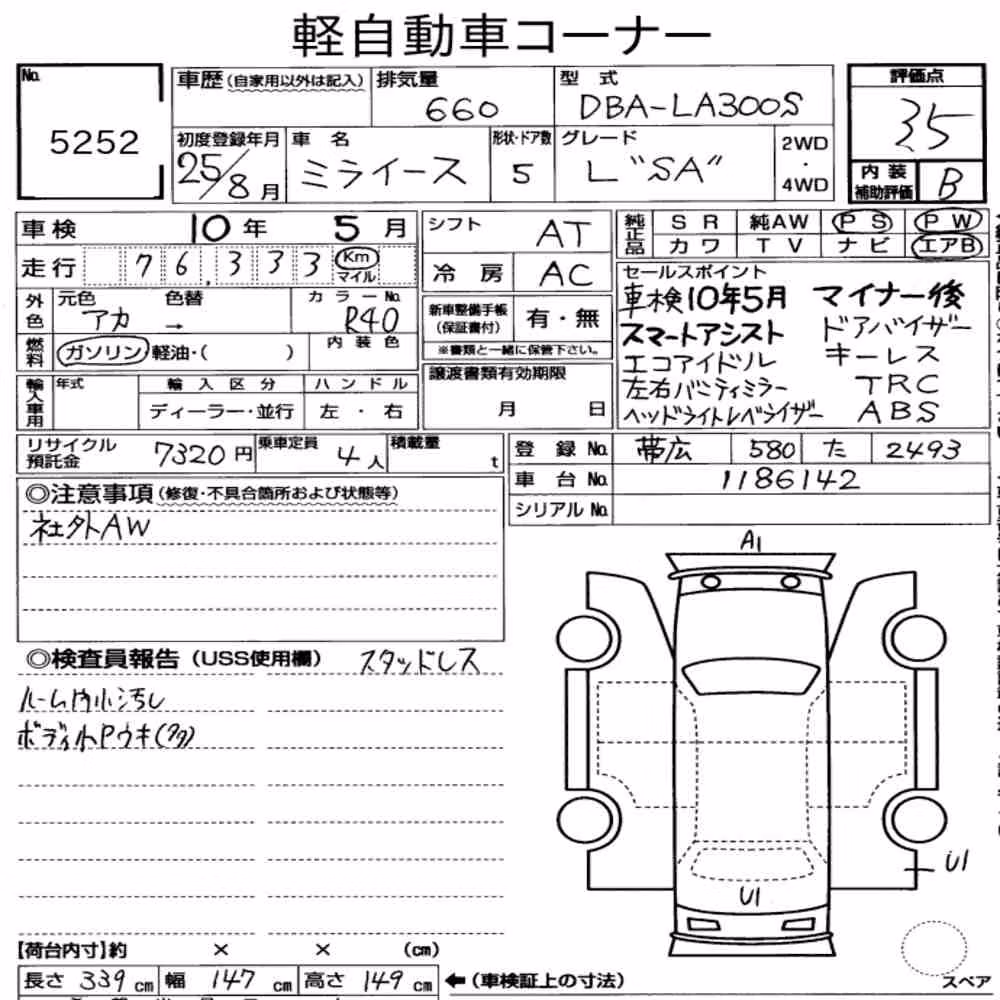 軽自動車コーナー
No. 5252
車歴(自家用以外は記入) 排気量 660 型式 DBA-LA300S 評価点 3.5
初度登録年月 25/8月 車名 ミライース 形状・ドア数 5 グレード L"SA" 2WD・4WD 内装補助評価 B
車検 10年 5月 シフト AT 純正品 SR 純AW PS PW
走行 76,333 Km マイル 冷房 AC カワ TV ナビ エアB
外色 元色 アカ 色替 → カラーNo. R40 新車整備手帳(保証書付) 有・無 ※書類と一緒に保管下さい。
セールスポイント
車検10年5月 マイナー後
スマートアシスト ドアバイザー
エコアイドル キーレス
左右バニティミラー TRC
ヘッドライトレベライザー ABS
燃料 ガソリン 軽油・( ) 内装色
輸入車用 年式 輸入区分 ディーラー・並行 ハンドル 左・右 譲渡書類有効期限 月 日
リサイクル預託金 7320円 乗車定員 4人 積載量 t 登録No. 帯広 580 た 2493
車台No. 1186142
シリアルNo.
◎注意事項(修復・不具合箇所および状態等)
社外AW
A1
◎検査員報告(USS使用欄) スタッドレス
ルーム内小汚し
ボディ小Pウキ(タタ)
U1
U1
【荷台内寸】約 × × (cm)
長さ 339cm 幅 147cm 高さ 149cm ←(車検証上の寸法) スペア